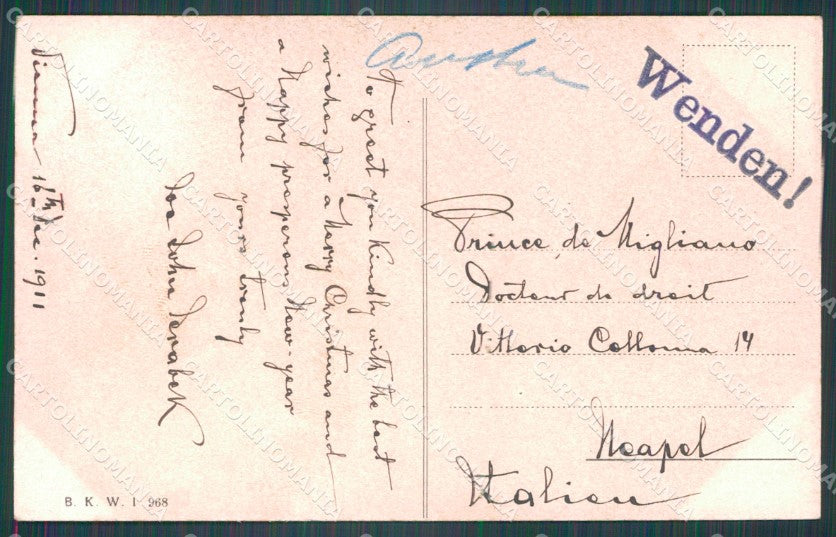 Austria
Wenden!
Vienna 16th Dec. 1911
To greet you kindly with the best
wishes for a Merry Christmas and
a Happy prosperous New-year
from yours truly
John Jerabek
Prince de Migliano
Docteur de droit
Vittorio Collonna 14
Neapel
Italien
B. K. W. I. 968
CARTOLINOMANIA